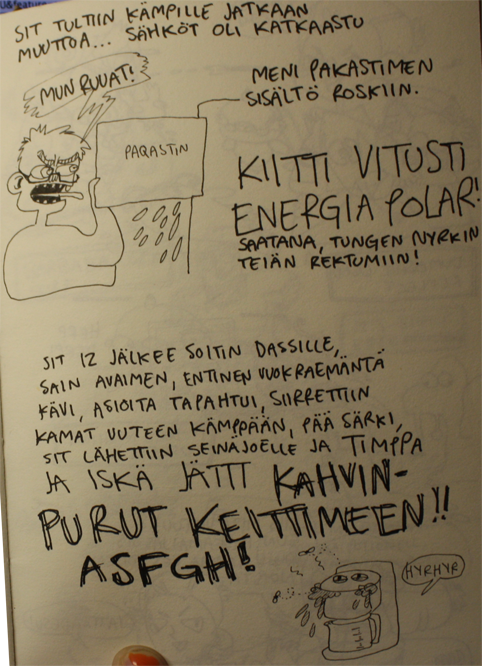 SIT TULTIIN KÄMPILLE JATKAAN
MUUTTOA... SÄHKÖT OLI KATKAASTU
MUN RUUAT!
MENI PAKASTIMEN
SISÄLTÖ ROSKIIN.
PAQASTIN
KIITTI VITUSTI
ENERGIA POLAR!
SAATANA, TUNGEN NYRKIN
TEIÄN REKTUMIIN!
SIT 12 JÄLKEE SOITIN DASSILLE,
SAIN AVAIMEN, ENTINEN VUOKRAEMÄNTÄ
KÄVI, ASIOITA TAPAHTUI, SIIRRETTIIN
KAMAT UUTEEN KÄMPPÄÄN, PÄÄ SÄRKI,
SIT LÄHETTIIN SEINÄJOELLE JA TIMPPA
JA ISKÄ JÄTTI KAHVIN-
PURUT KEITTIMEEN!!
ASFGH!
HYRHYR